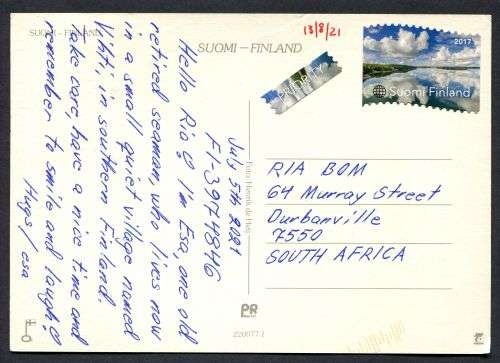 SUOMI - FINLAND
SUOMI - FINLAND
13/8/21
PRIORITY
2017
Suomi Finland
July 5th 2021
FI-3974846
Hello Ria
I'm Esa, one old
retired seaman, who lives now
in a small quiet village named
Vihti, in southern Finland.
Take care, have a nice time and
remember to smile and laugh
Hugs / esa
RIA BOM
64 Murray Street
Durbanville
7550
SOUTH AFRICA
PR
220677-1